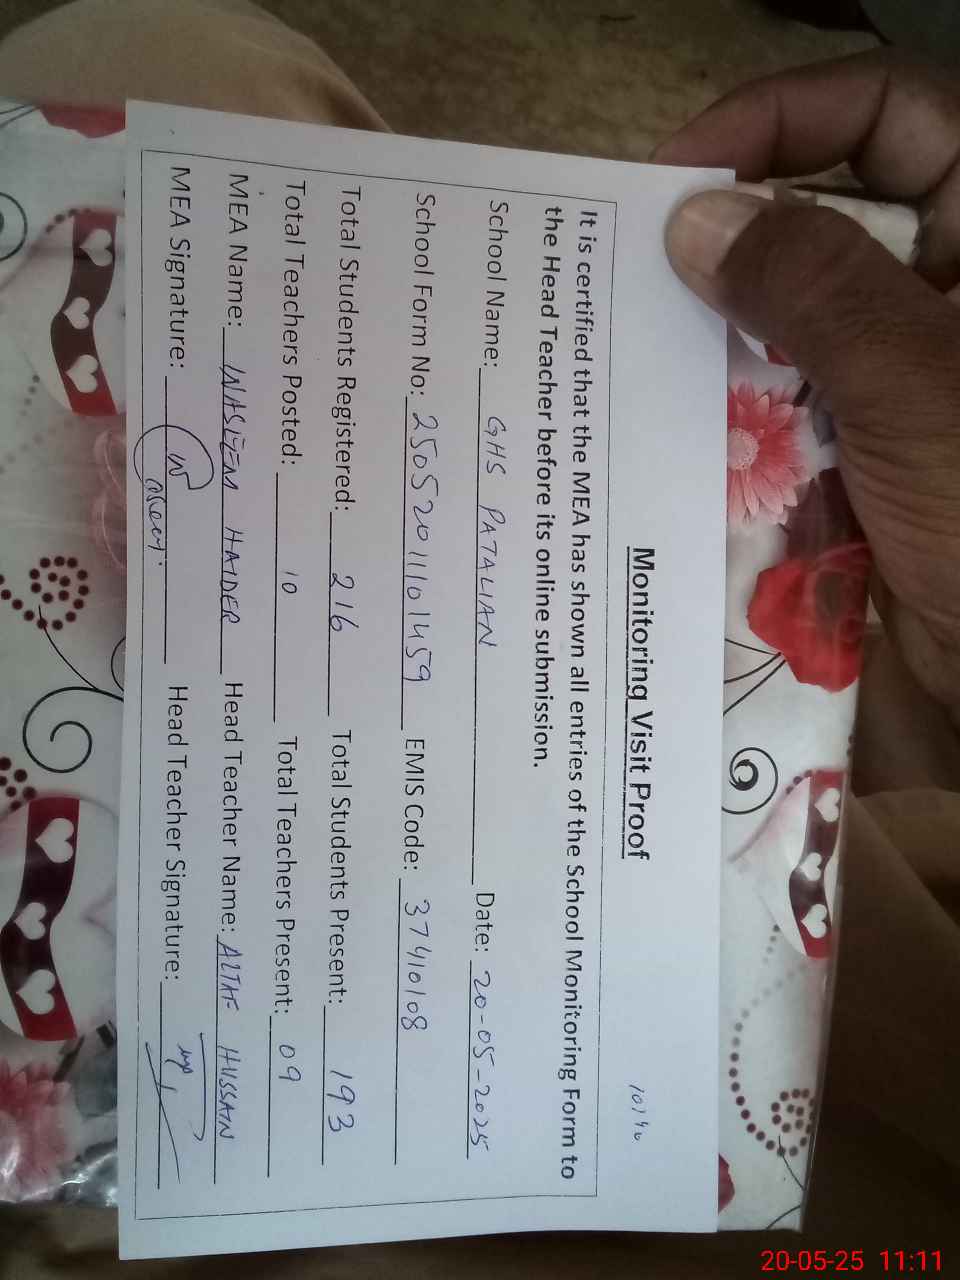 10140
Monitoring Visit Proof
It is certified that the MEA has shown all entries of the School Monitoring Form to
the Head Teacher before its online submission.
School Name: GHS PATALIAN Date: 20-05-2025
School Form No: 25052011101459 EMIS Code: 37410108
Total Students Registered: 216 Total Students Present: 193
Total Teachers Posted: 10 Total Teachers Present: 09
MEA Name: WASEEM HAIDER Head Teacher Name: ALTAF HUSSAIN
MEA Signature: Head Teacher Signature:
20-05-25 11:11